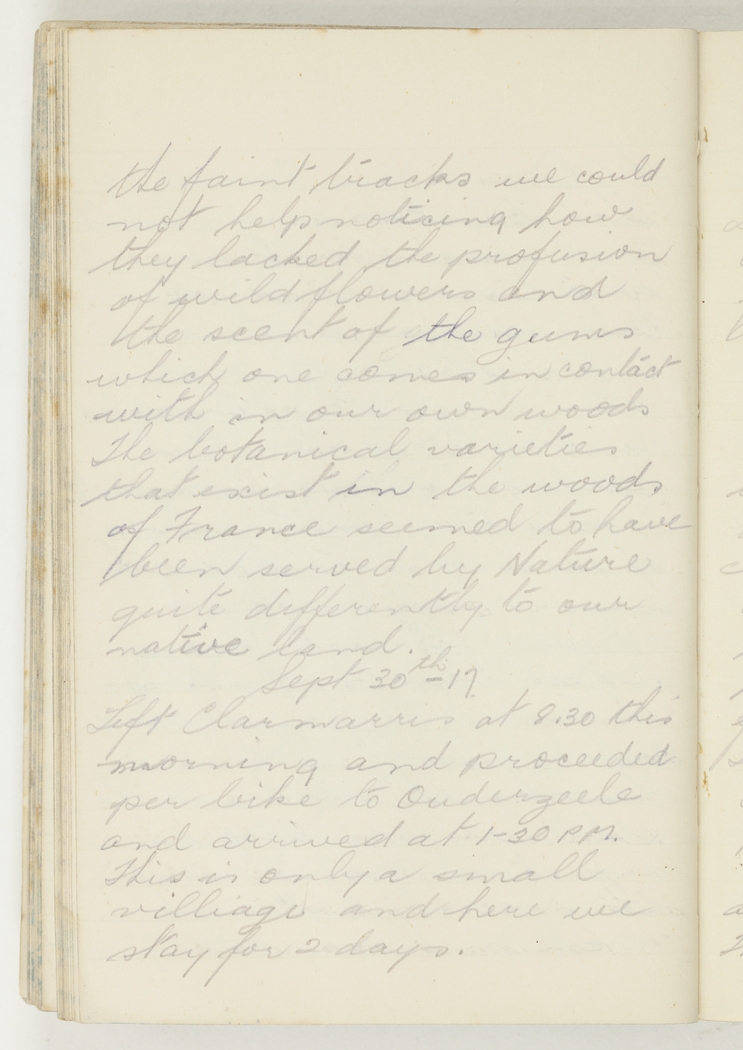 the faint tracks we could
not help noticing how
they lacked the profusion
of wild flowers and
the scent of the gums
which one comes in contact
with in our own woods
The botanical varieties
that exist in the woods
of France seemed to have
been served by Nature
quite differently to our
native land.
Sept 30th-17
Left Clarmarris at 8.30 this
morning and proceeded
per bike to Ouderzeele
and arrived at 1-30 PM.
This is only a small
villiage and here we
stay for 2 days.